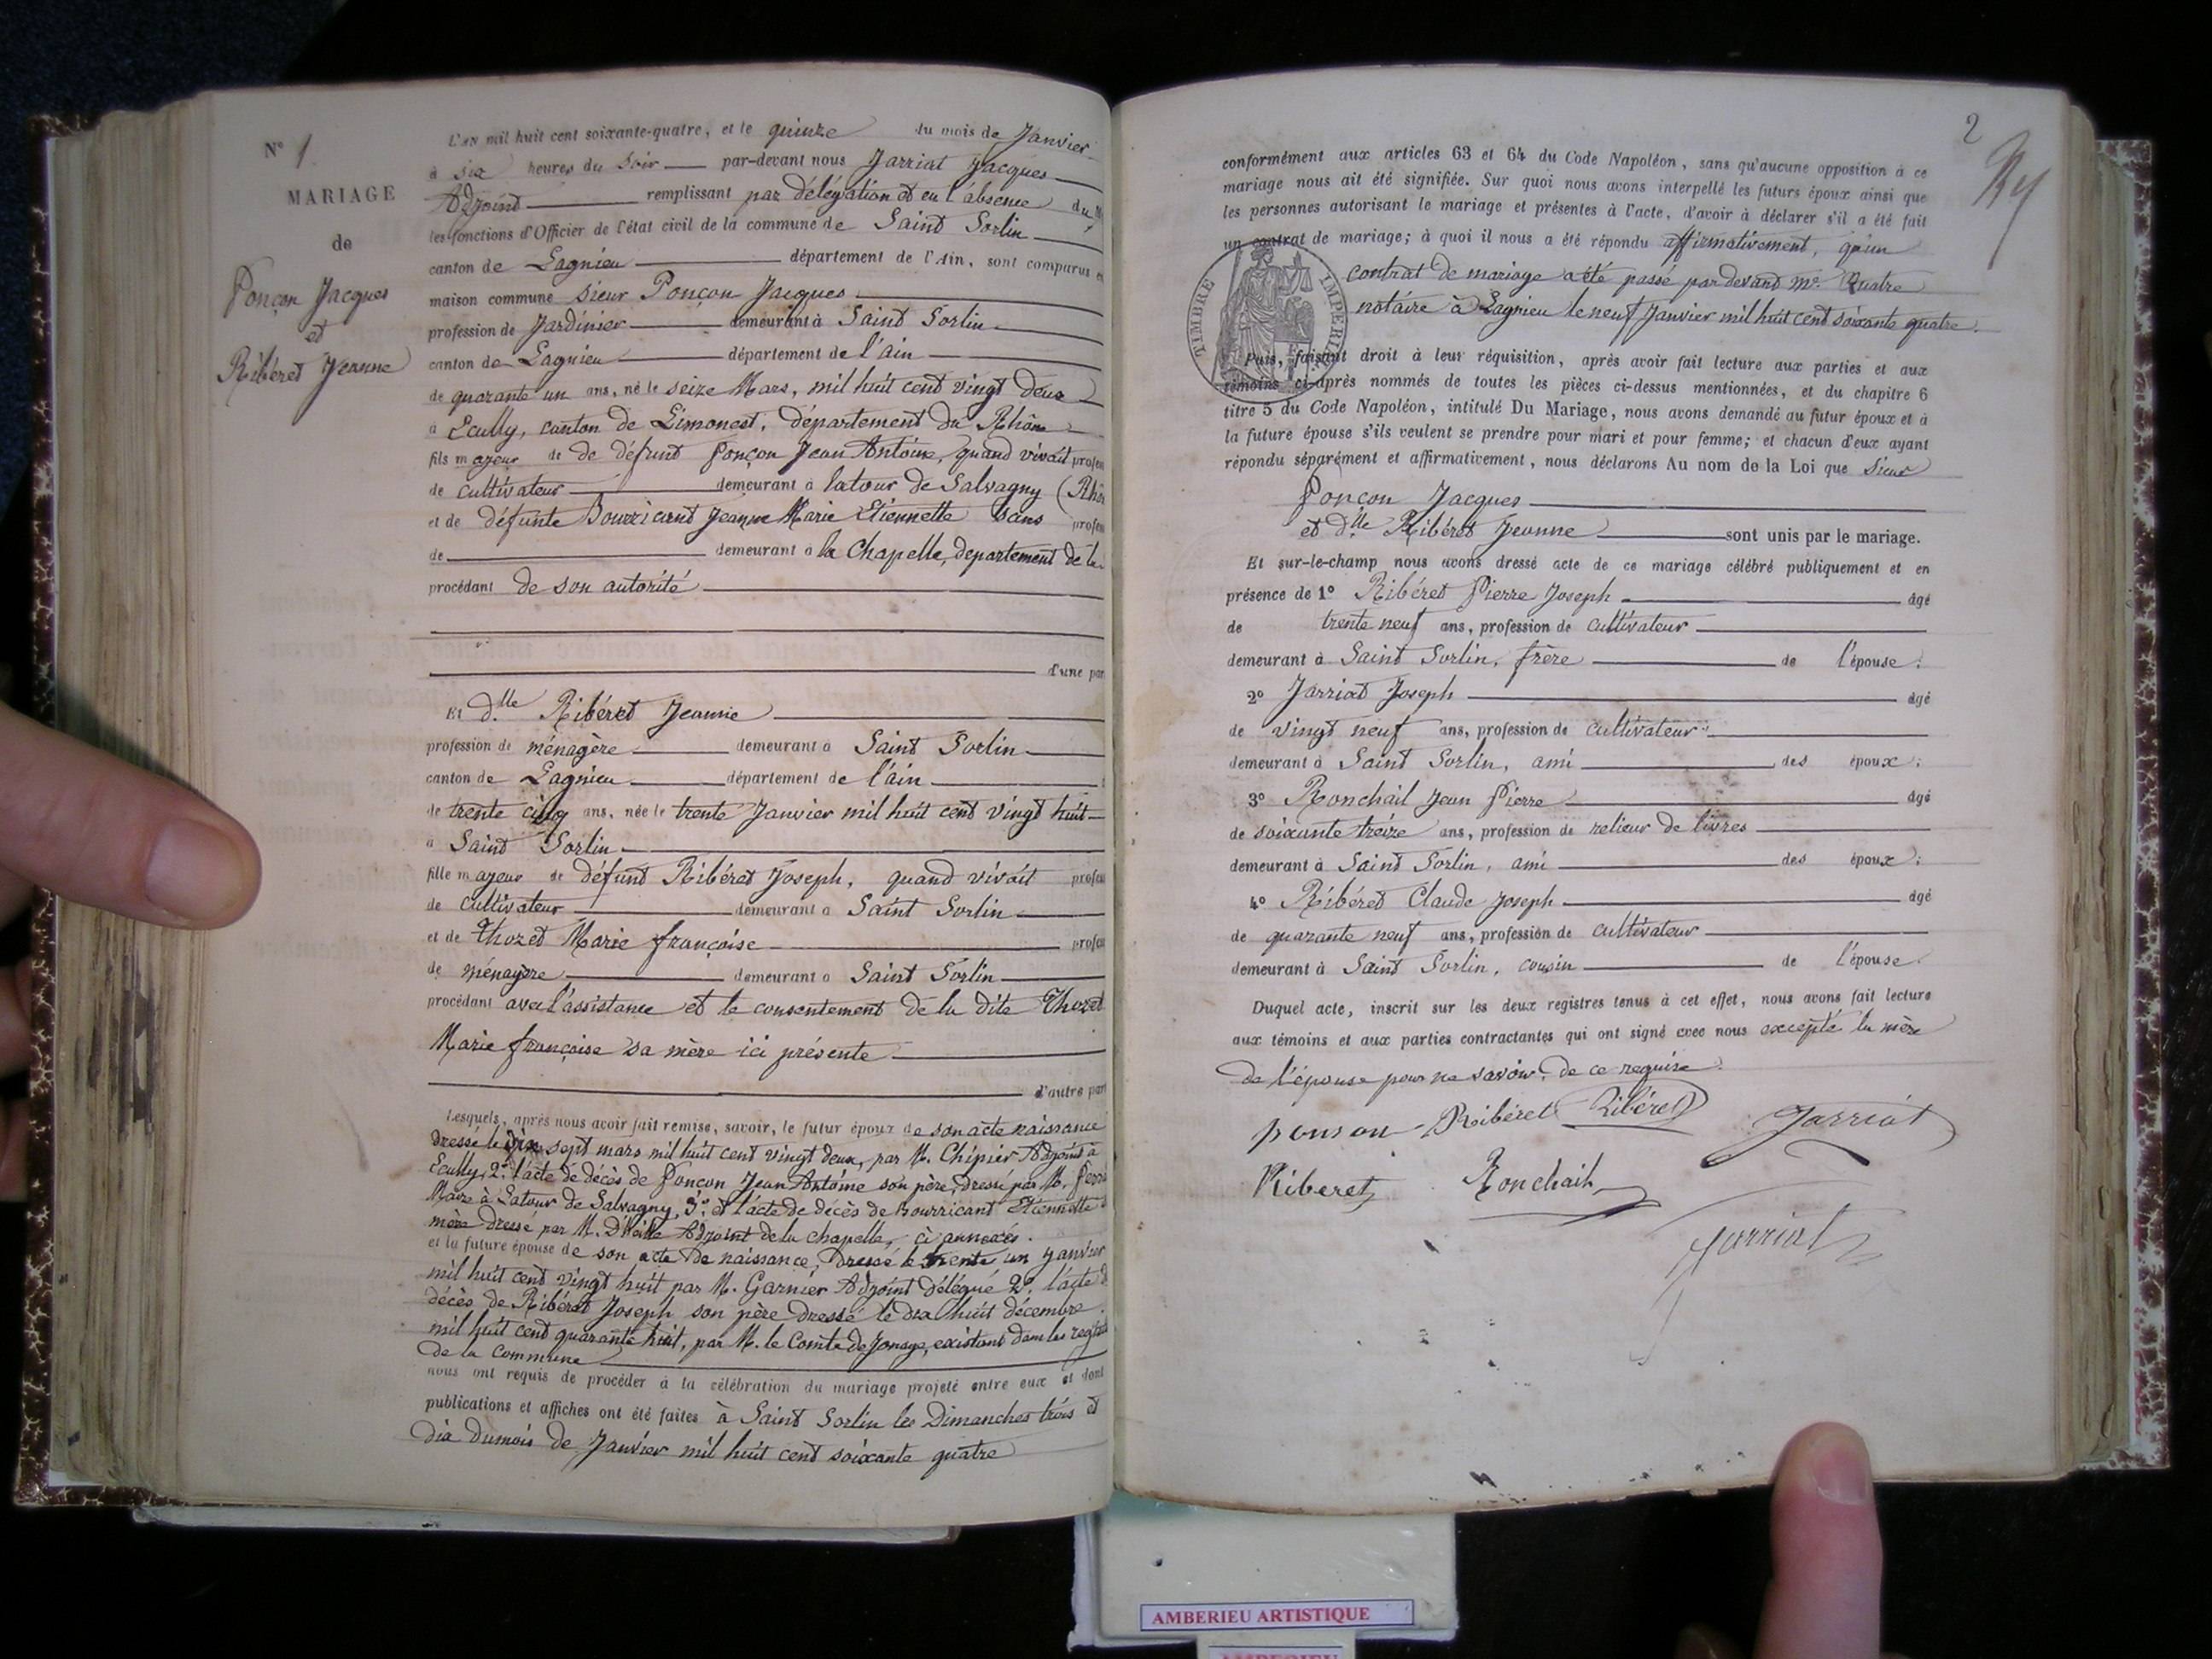 N° 1
MARIAGE
de
Ponçon Jacques
et
Ribéret Jeanne
L'AN mil huit cent soixante-quatre, et le quinze du mois de Janvier
à six heures du Soir par-devant nous Jarriat Jacques
Adjoint remplissant par délégation et en l'absence du
les fonctions d'Officier de l'état civil de la commune de Saint Sorlin
canton de Lagnieu département de l'Ain, sont comparus en
maison commune Sieur Ponçon Jacques
profession de Jardinier demeurant à Saint Sorlin
canton de Lagnieu département de l'ain
de quarante un ans, né le seize Mars, mil huit cent vingt deux
à Ecully, canton de Limonest, département du Rhône
fils majeur de de défunt Ponçon Jean Antoine, quand vivait profes
de cultivateur demeurant à latour de Salvagny (Rhô
et de défunte Bourricant Jeanne Marie Etiennette sans profes
de demeurant à la Chapelle, département de la
procédant de son autorité
d'une part
Et dlle Ribéret Jeanne
profession de ménagère demeurant à Saint Sorlin
canton de Lagnieu département de l'ain
de trente cinq ans, née le trente Janvier mil huit cent vingt huit
à Saint Sorlin
fille majeur de défunt Ribéret Joseph, quand vivait profes
de cultivateur demeurant à Saint Sorlin
et de Thozet Marie françoise profes
de ménagère demeurant à Saint Sorlin
procédant avec l'assistance et le consentement de la dite Thozet
Marie françoise sa mère ici présente
d'autre part
Lesquels, après nous avoir fait remise, savoir, le futur époux de son acte naissance
dressé le dix sept mars mil huit cent vingt deux, par M. Chipier Adjoint à
Ecully, 2° l'acte de décès de Ponçon Jean Antoine son père, dressé par M.
Maire à Latour de Salvagny, 3° et l'acte de décès de Bourricant Etiennette
mère dressé par M. Adjoint de la chapelle, ci annexés.
et la future épouse de son acte de naissance, dressé le trente un janvier
mil huit cent vingt huit par M. Garnier Adjoint délégué 2° l'acte d
décès de Ribéret Joseph son père dressé le dix huit décembre
mil huit cent quarante huit, par M. le Comte de Jonage, existant dans les regist
de la commune
nous ont requis de procéder à la célébration du mariage projeté entre eux et dont
publications et affiches ont été faites à Saint Sorlin les Dimanches trois et
dix du mois de Janvier mil huit cent soixante quatre
2
conformément aux articles 63 et 64 du Code Napoléon, sans qu'aucune opposition à ce
mariage nous ait été signifiée. Sur quoi nous avons interpellé les futurs époux ainsi que
les personnes autorisant le mariage et présentes à l'acte, d'avoir à déclarer s'il a été fait
un contrat de mariage; à quoi il nous a été répondu affirmativement, qu'un
contrat de mariage a été passé par devant me. Quatre
notaire à Lagnieu le neuf Janvier mil huit cent soixante quatre.
TIMBRE IMPERIAL
Puis, faisant droit à leur réquisition, après avoir fait lecture aux parties et aux
témoins ci-après nommés de toutes les pièces ci-dessus mentionnées, et du chapitre 6
titre 5 du Code Napoléon, intitulé Du Mariage, nous avons demandé au futur époux et à
la future épouse s'ils veulent se prendre pour mari et pour femme; et chacun d'eux ayant
répondu séparément et affirmativement, nous déclarons Au nom de la Loi que Sieur
Ponçon Jacques
et dlle Ribéret Jeanne sont unis par le mariage.
Et sur-le-champ nous avons dressé acte de ce mariage célébré publiquement et en
présence de 1° Ribéret Pierre Joseph âgé
de trente neuf ans, profession de cultivateur
demeurant à Saint Sorlin, frère de l'épouse;
2° Jarriat Joseph âgé
de vingt neuf ans, profession de cultivateur
demeurant à Saint Sorlin, ami des époux;
3° Ronchail Jean Pierre âgé
de soixante treize ans, profession de relieur de livres
demeurant à Saint Sorlin, ami des époux;
4° Ribéret Claude Joseph âgé
de quarante neuf ans, profession de cultivateur
demeurant à Saint Sorlin, cousin de l'épouse
Duquel acte, inscrit sur les deux registres tenus à cet effet, nous avons fait lecture
aux témoins et aux parties contractantes qui ont signé avec nous excepté la mère
de l'épouse pour ne savoir, de ce requise.
ponson Ribéret Ribéret Jarriat
Riberet Ronchail
Jarriat
AMBERIEU ARTISTIQUE
AMBERIEU